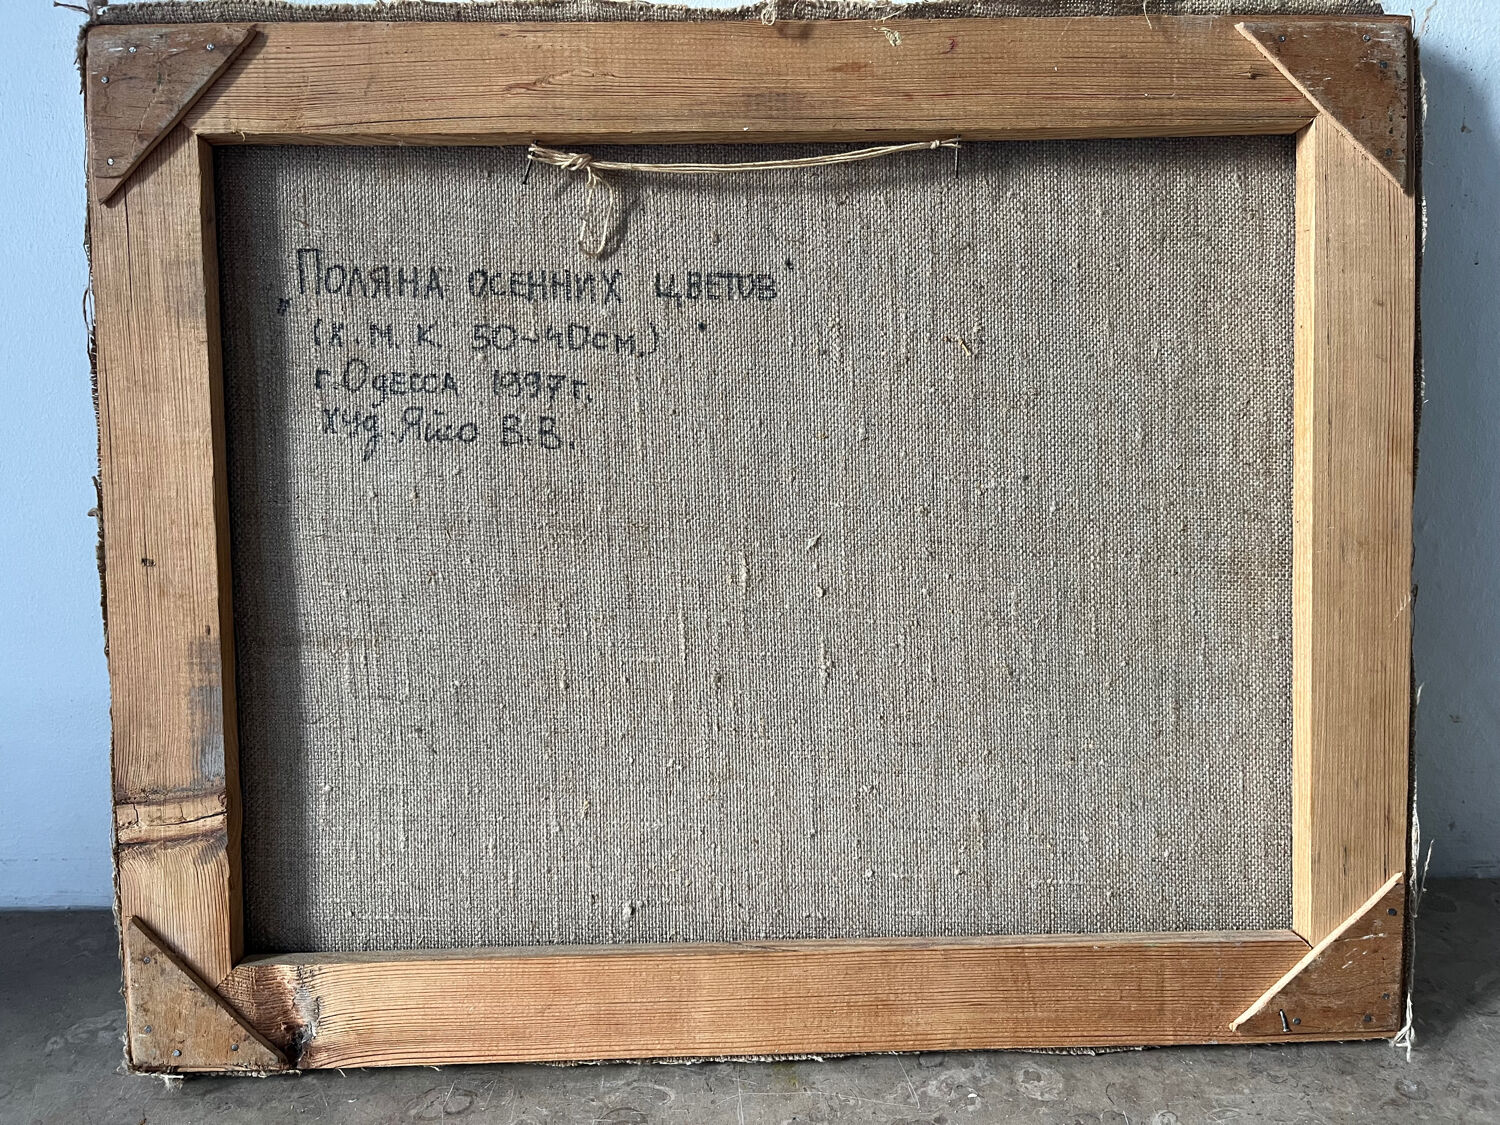 „Поляна осенних цветов"
(х. м. к. 50~40см.)
г. Одесса 1997г.
худ. Яйло В. В.